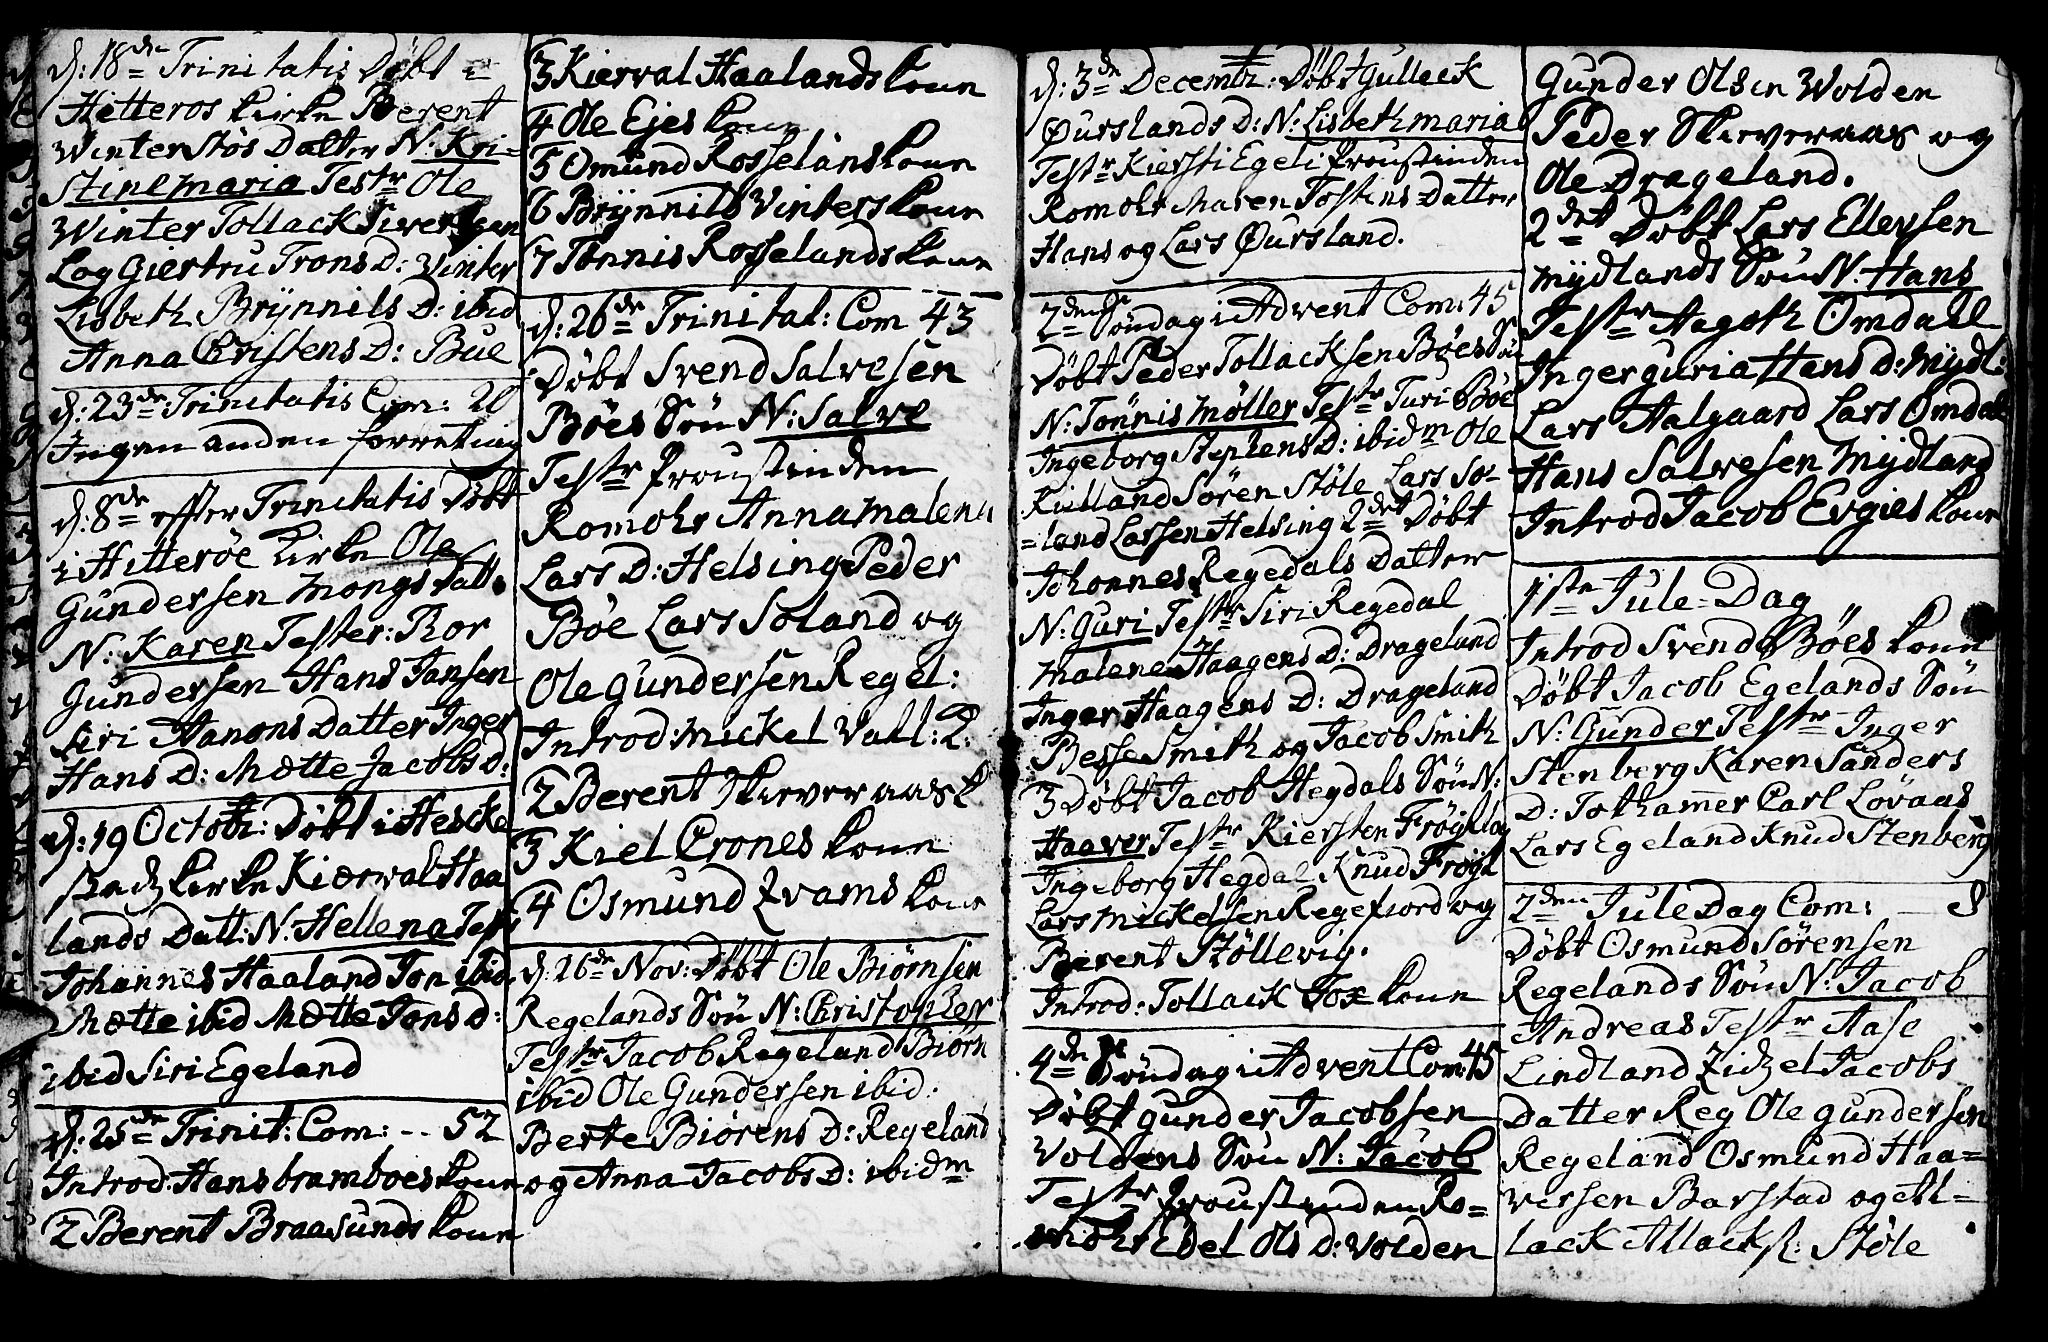 d: 18de Trinitatis Døbt i
Hitteros kirke Berent
Winterstøs Datter N: Kri-
stinemaria Testr Ole
Winter Tollack Siversen
Log Giertru Trons D: Vinter
Lisbeth Brÿnnils D: ibid
Anna Christens D: Bue
d: 23de Trinitatis Com: 20
Ingen anden forretning
d: 8de efter Trinitatis Døbt
i Hitterøe Kirke Ole
Gundersen Mongs Datt.
N: Karen Tester: Ror
Gundersen Hans Jansen
Siri Hanons Datter Inger
Hans D: Mette Jacobs D:
d: 19 Octobr: Døbt i Heske
stadz kirke Kiærval Haa
lands Datt: N. Hellena Test
Johannes Haaland Jon ibid
Mette ibid Mette Jons D:
ibid Siri Egeland
d: 25de Trinit: Com: -- 52
Introd: Hans bramboes kone
2 Berent Braasunds kone
3 Kierval Haalands kone
4 Ole Ejes kone
5 Omund Rosselans kone
6 Brÿnnild Vinters kone
7 Tønnis Rosselands kone
d: 26de Trinitat: Com 43
Døbt Svend Salvesen
Böes Søn N: Salve
Testr Proustinden
Romohr Anna Malena
Lars D: Helsing Peder
Böe Lars Soland og
Ole Gundersen Regel:
Introd: Mickel Vatl: 2:
2 Berent Skieveraas k
3 Kiel Crones kone
4 Osmund Qvams kone
d: 26de Nov: Døbt Ole Biørnsen
Regelands Søn N: Christopher
Testr Jacob Regeland Biørn
ibid Ole Gundersen ibid:
Berte Biørens D: Regeland
og Anna Jacobs D: ibidm
d: 3de Decembr: Døbt Gulleck
Øurslands D: N: Lisbethmaria
Testr Kiersti Egeli Proustinden
Romohr Maren Tostens Datter
Hans og Lars Øursland.
2den Søndag i Advent Com: 45
Døbt Peder Tollacksen Bøes Søn
N: Tønnis Møller Testr Turi Bøe
Ingeborg Stephens D: ibidm Ole
Rulland Søren Støle Lars So-
=land Larsen Helsing 2det Døbt
Johonnes Regedals Datter
N: Guri Testr Siri Regedal
Malene Haagens D: Drageland
Inger Haagens D: Drageland
Besse Smith og Jacob Smith
3 Døbt Jacob Hegdals Søn N:
Haaver Testr Kiersten Frøytlog
Ingeborg Hegdal Knud Frøytl
Lars Mickelsen Regefiord og
Berent Støllevig.
Introd: Tollack Tox kone
4de Søndag i Advent Com: 45
Døbt Gunder Jacobsen
Voldens Søn N: Jacob
Testr Proustinden Ro=
mohr Edel Ols D: Volden
Gunder Olsen Wolden
Peder Skieveraas og
Ole Drageland.
2det Døbt Lars Ellevsen
Mÿdlands Søn N: Hans
Testr Aagoth Omdall
Ingerguria Hans D: Mÿdl:
Lars Aalgaard Lars Omdal
Hans Salvesen Mÿdland
Introd Jacob Evgies kone
1ste Jule-Dag
Introd Svend Böes kone
Døbt Jacob Egelands Søn
N: Gunder Testr Inger
Stenberg Karen Sanders
D: Jothammer Carl Løvaas
Lars Egeland Knud Stenberg
2den Jule Dag Com: — 8
Døbt Osmund Sørensen
Regelands Søn N: Jacob
Andreas Testr Aase
Lindland Zidzel Jacobs
Datter Reg Ole Gundersen
Regeland Osmund Haa=
versen Barstad og Atl=
lack Atlacks: Støle